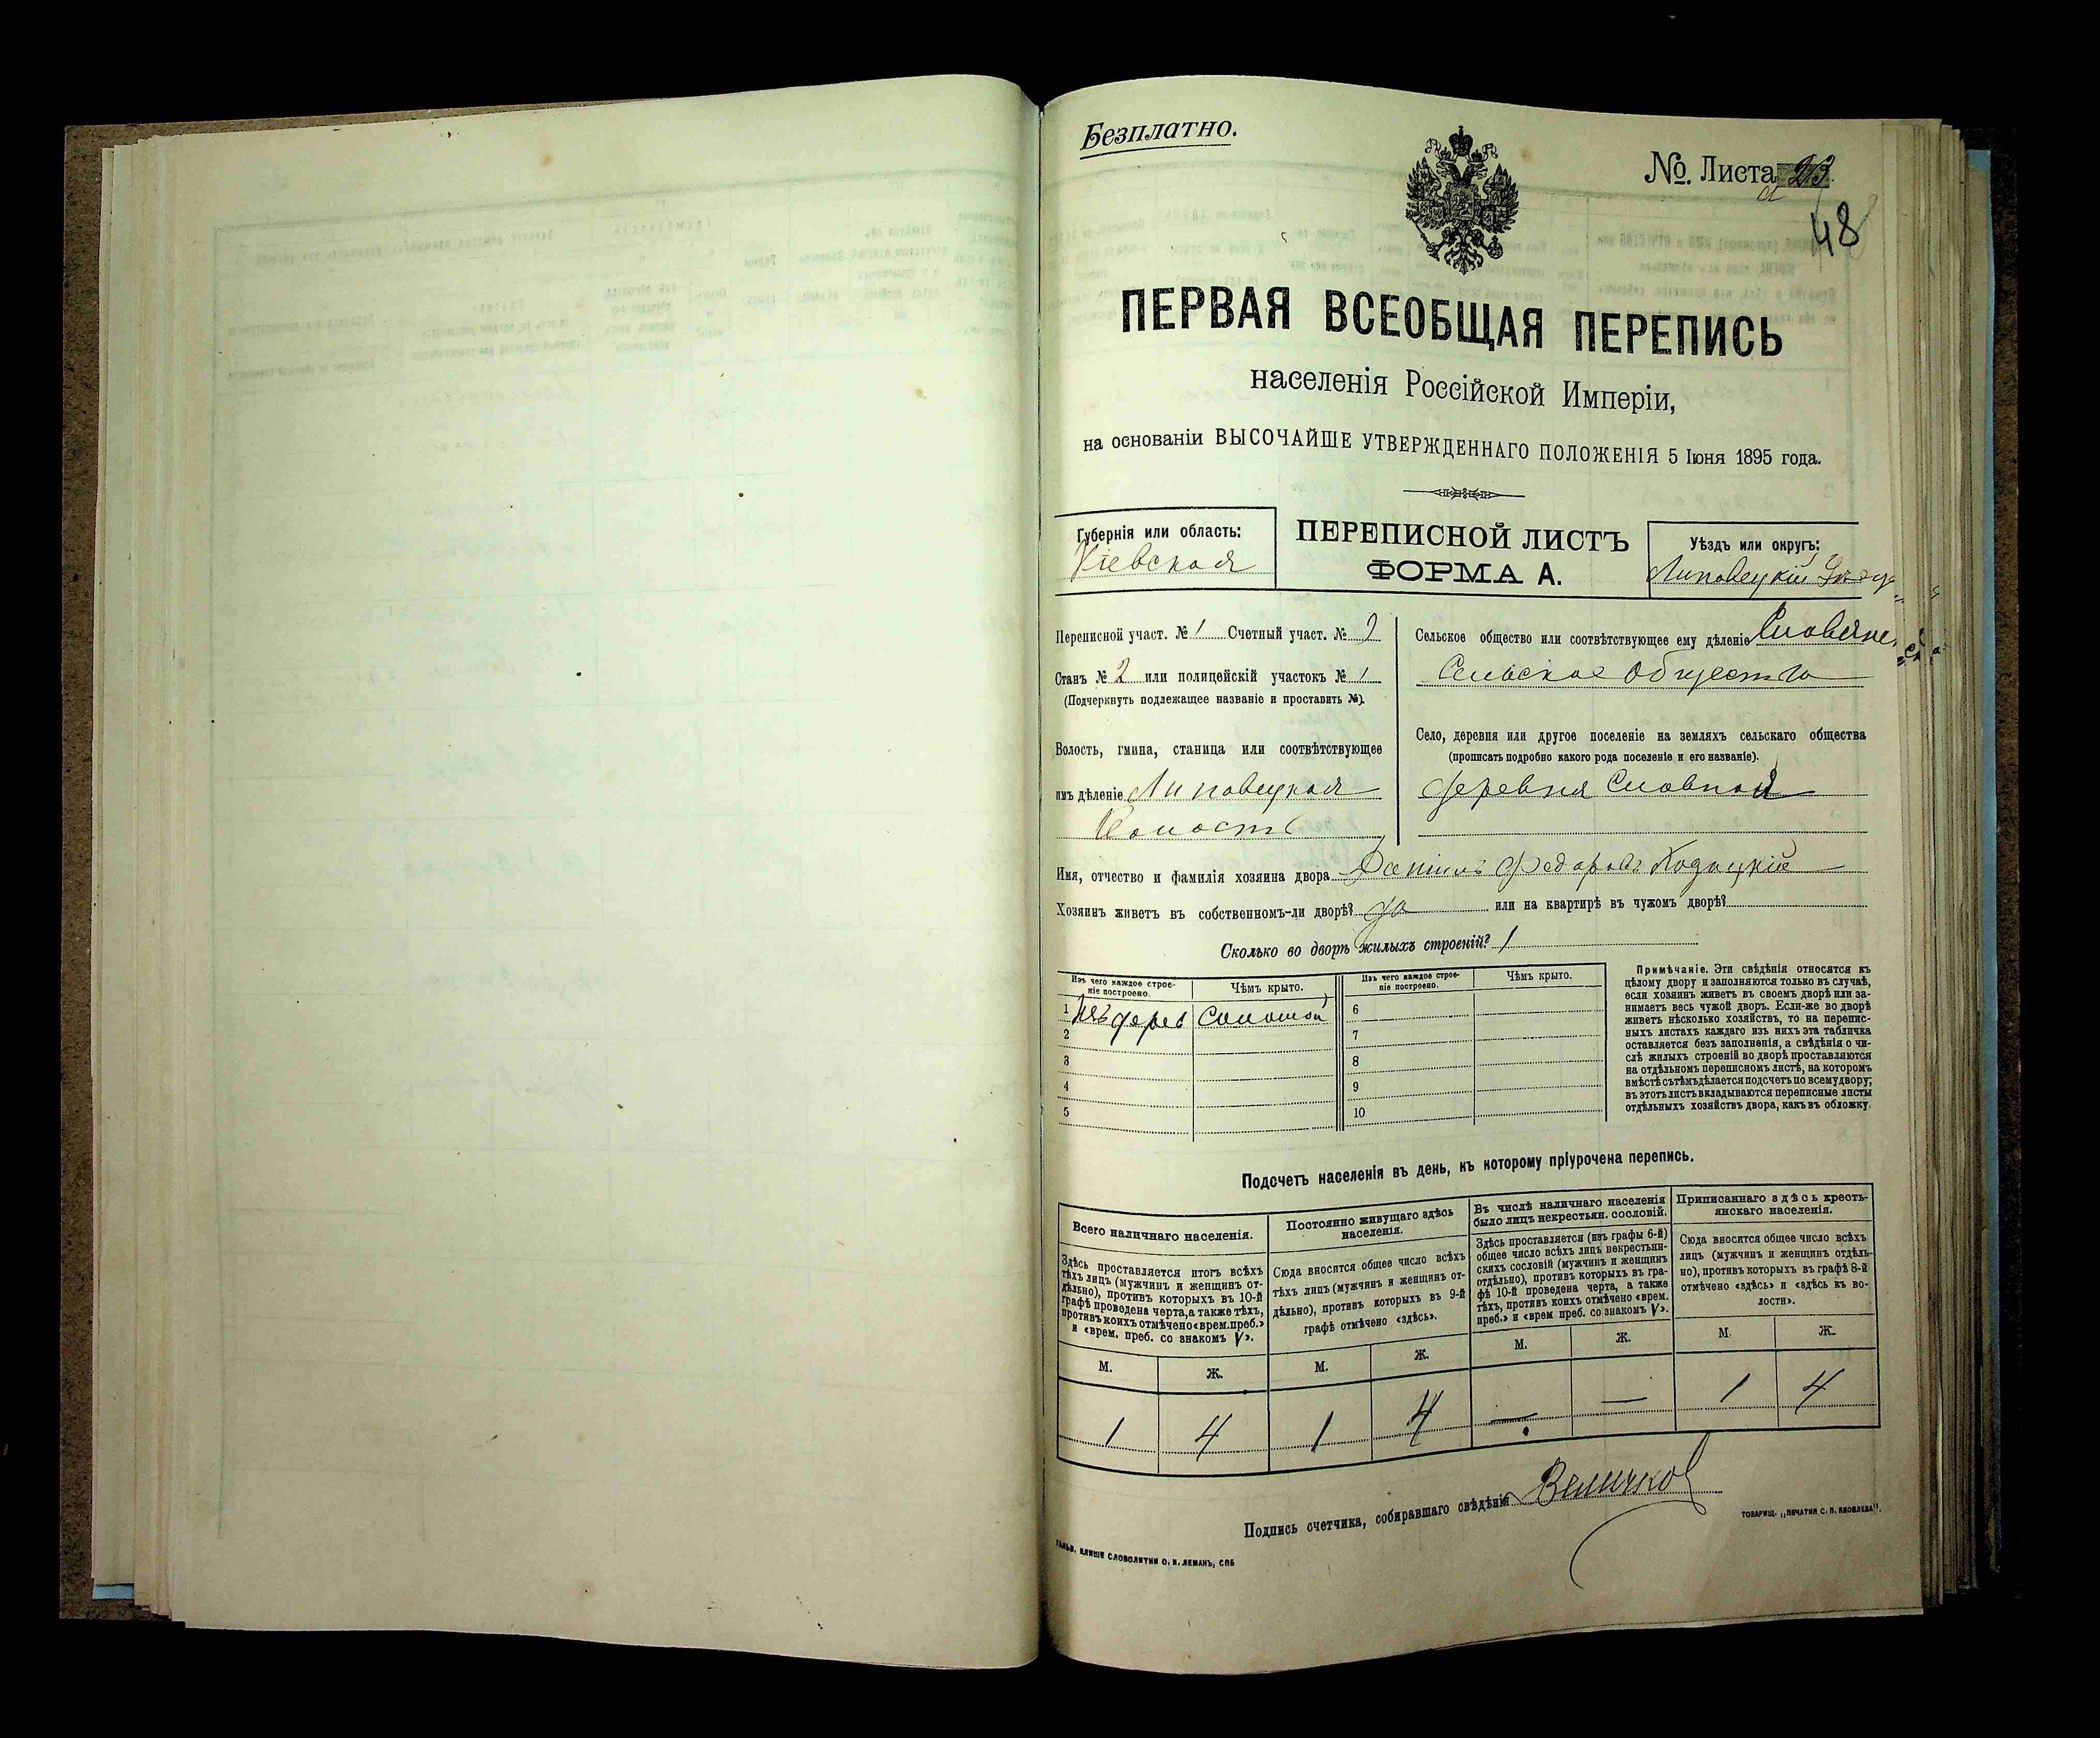 Безплатно.
№. Листа 23
48
ПЕРВАЯ ВСЕОБЩАЯ ПЕРЕПИСЬ
населенія Россійской Имперіи,
на основаніи ВЫСОЧАЙШЕ УТВЕРЖДЕННАГО ПОЛОЖЕНІЯ 5 Іюня 1895 года.
Губернія или область:
Кіевская
ПЕРЕПИСНОЙ ЛИСТЪ
ФОРМА А.
Уѣздъ или округъ:
Липовецкій Уѣздъ
Переписной участ. № 1 Счетный участ. № 9
Станъ № 2 или полицейскій участокъ № 1
(Подчеркнуть подлежащее названіе и проставить №).
Волость, гмина, станица или соотвѣтствующее
имъ дѣленіе Липовецкая
Волость
Сельское общество или соотвѣтствующее ему дѣленіе
Сельское Общество
Село, деревня или другое поселеніе на земляхъ сельскаго общества
(прописать подробно какого рода поселеніе и его названіе).
деревня Словная
Имя, отчество и фамилія хозяина двора Данило Федоровъ
Хозяинъ живетъ въ собственномъ-ли дворѣ? да или на квартирѣ въ чужомъ дворѣ?
Сколько во дворѣ жилыхъ строеній? 1
Изъ чего каждое строе-
ніе построено.
Чѣмъ крыто.
Изъ чего каждое строе-
ніе построено.
Чѣмъ крыто.
1 Изъ дерев Соломой 6
2 7
3 8
4 9
5 10
Примѣчаніе. Эти свѣдѣнія относятся къ
цѣлому двору и заполняются только въ случаѣ,
если хозяинъ живетъ въ своемъ дворѣ или за-
нимаетъ весь чужой дворъ. Если-же во дворѣ
живетъ нѣсколько хозяйствъ, то на перепис-
ныхъ листахъ каждаго изъ нихъ эта табличка
оставляется безъ заполненія, а свѣдѣнія о чи-
слѣ жилыхъ строеній во дворѣ проставляются
на отдѣльномъ переписномъ листѣ, на которомъ
вмѣстѣ съ тѣмъ дѣлается подсчетъ по всему двору;
въ этотъ листъ вкладываются переписные листы
отдѣльныхъ хозяйствъ двора, какъ въ обложку.
Подсчетъ населенія въ день, къ которому пріурочена перепись.
Всего наличнаго населенія.
Здѣсь проставляется итогъ всѣхъ
тѣхъ лицъ (мужчинъ и женщинъ от-
дѣльно), противъ которыхъ въ 10-й
графѣ проведена черта, а также тѣхъ,
противъ коихъ отмѣчено «врем. преб.»
и «врем. преб. со знакомъ V».
Постоянно живущаго здѣсь
населенія.
Сюда вносится общее число всѣхъ
тѣхъ лицъ (мужчинъ и женщинъ от-
дѣльно), противъ которыхъ въ 9-й
графѣ отмѣчено «здѣсь».
Въ числѣ наличнаго населенія
было лицъ некрестьян. сословій.
Здѣсь проставляется (изъ графы 6-й)
общее число всѣхъ лицъ некрестьян-
скихъ сословій (мужчинъ и женщинъ
отдѣльно), противъ которыхъ въ гра-
фѣ 10-й проведена черта, а также
тѣхъ, противъ коихъ отмѣчено «врем.
преб.» и «врем преб. со знакомъ V».
Приписаннаго здѣсь кресть-
янскаго населенія.
Сюда вносится общее число всѣхъ
лицъ (мужчинъ и женщинъ отдѣль-
но), противъ которыхъ въ графѣ 8-й
отмѣчено «здѣсь» и «здѣсь къ во-
лости».
М. Ж. М. Ж. М. Ж. М. Ж.
1 4 1 4 — — 1 4
Подпись счетчика, собиравшаго свѣдѣнія Величко
ГАЛЬВ. КЛИШЕ СЛОВОЛИТНИ О. И. ЛЕМАНЪ, СПБ
ТОВАРИЩ. „ПЕЧАТНЯ С. П. ЯКОВЛЕВА".